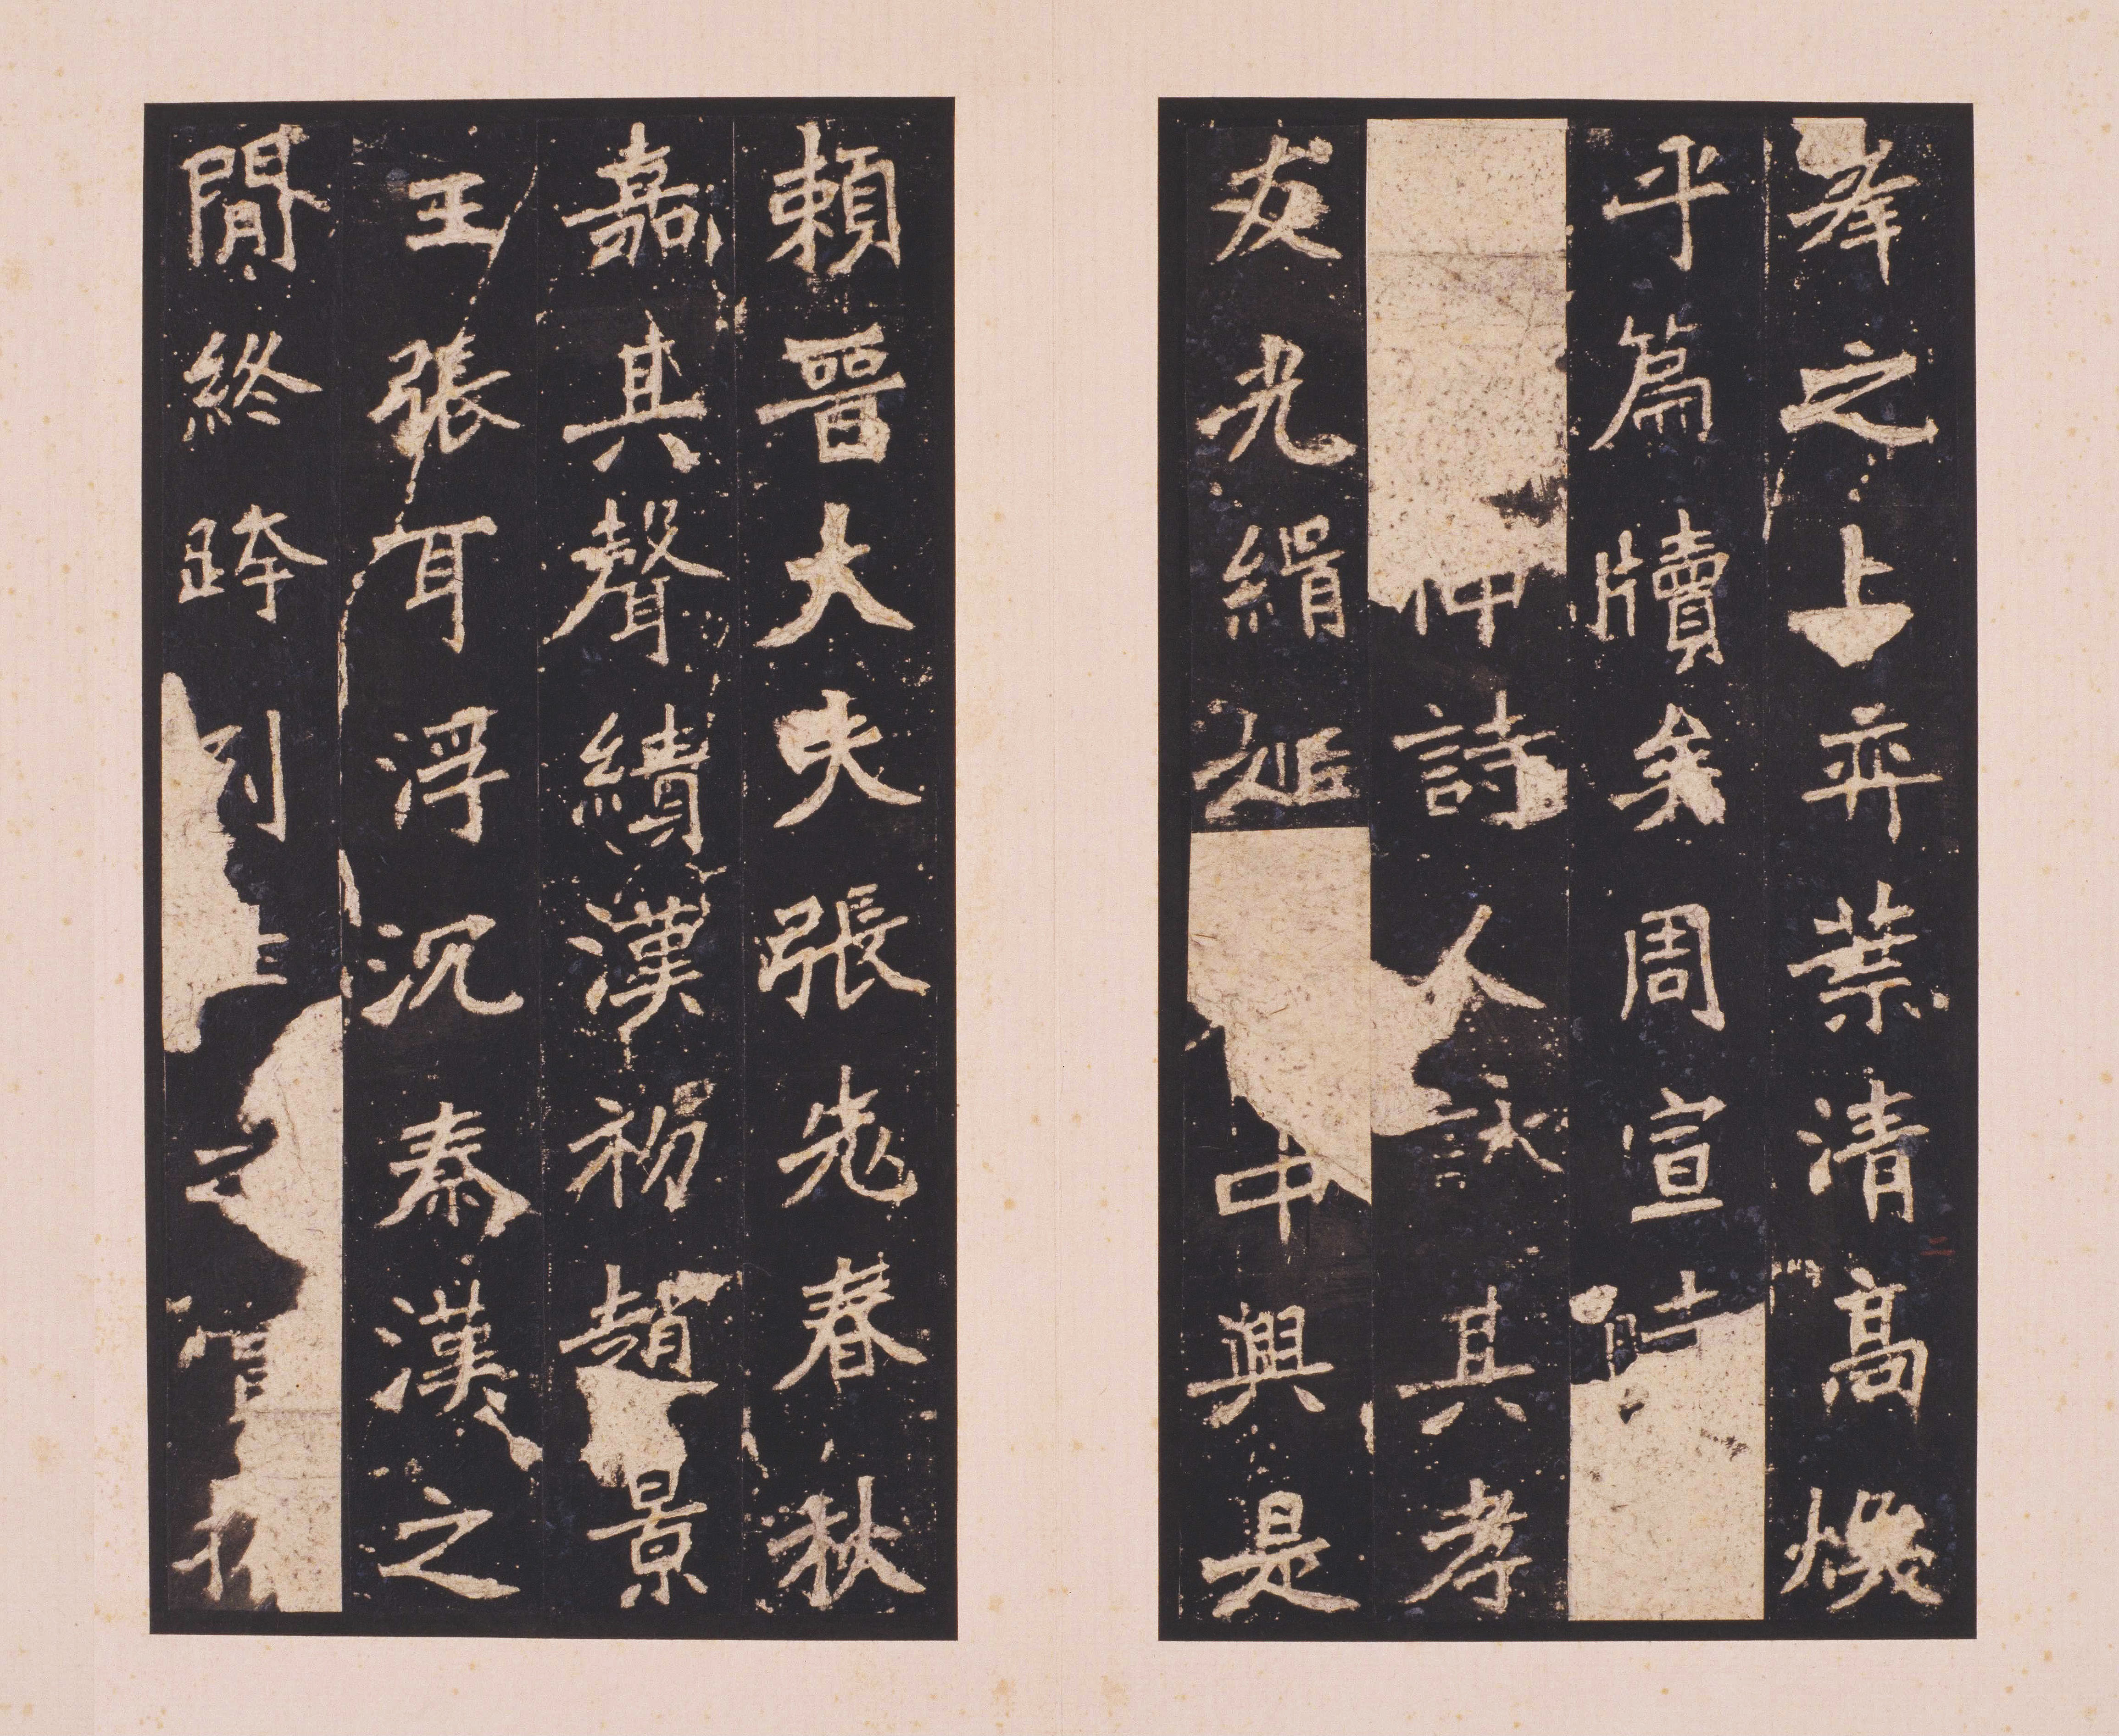 峯之上弈葉清高煥
乎篇牘矣周宣時
仲詩人詠其孝
友光緝姬中興是
賴晉大夫張老春秋
嘉其聲績漢初趙景
王張耳浮沉秦漢之
閒終跨列土之